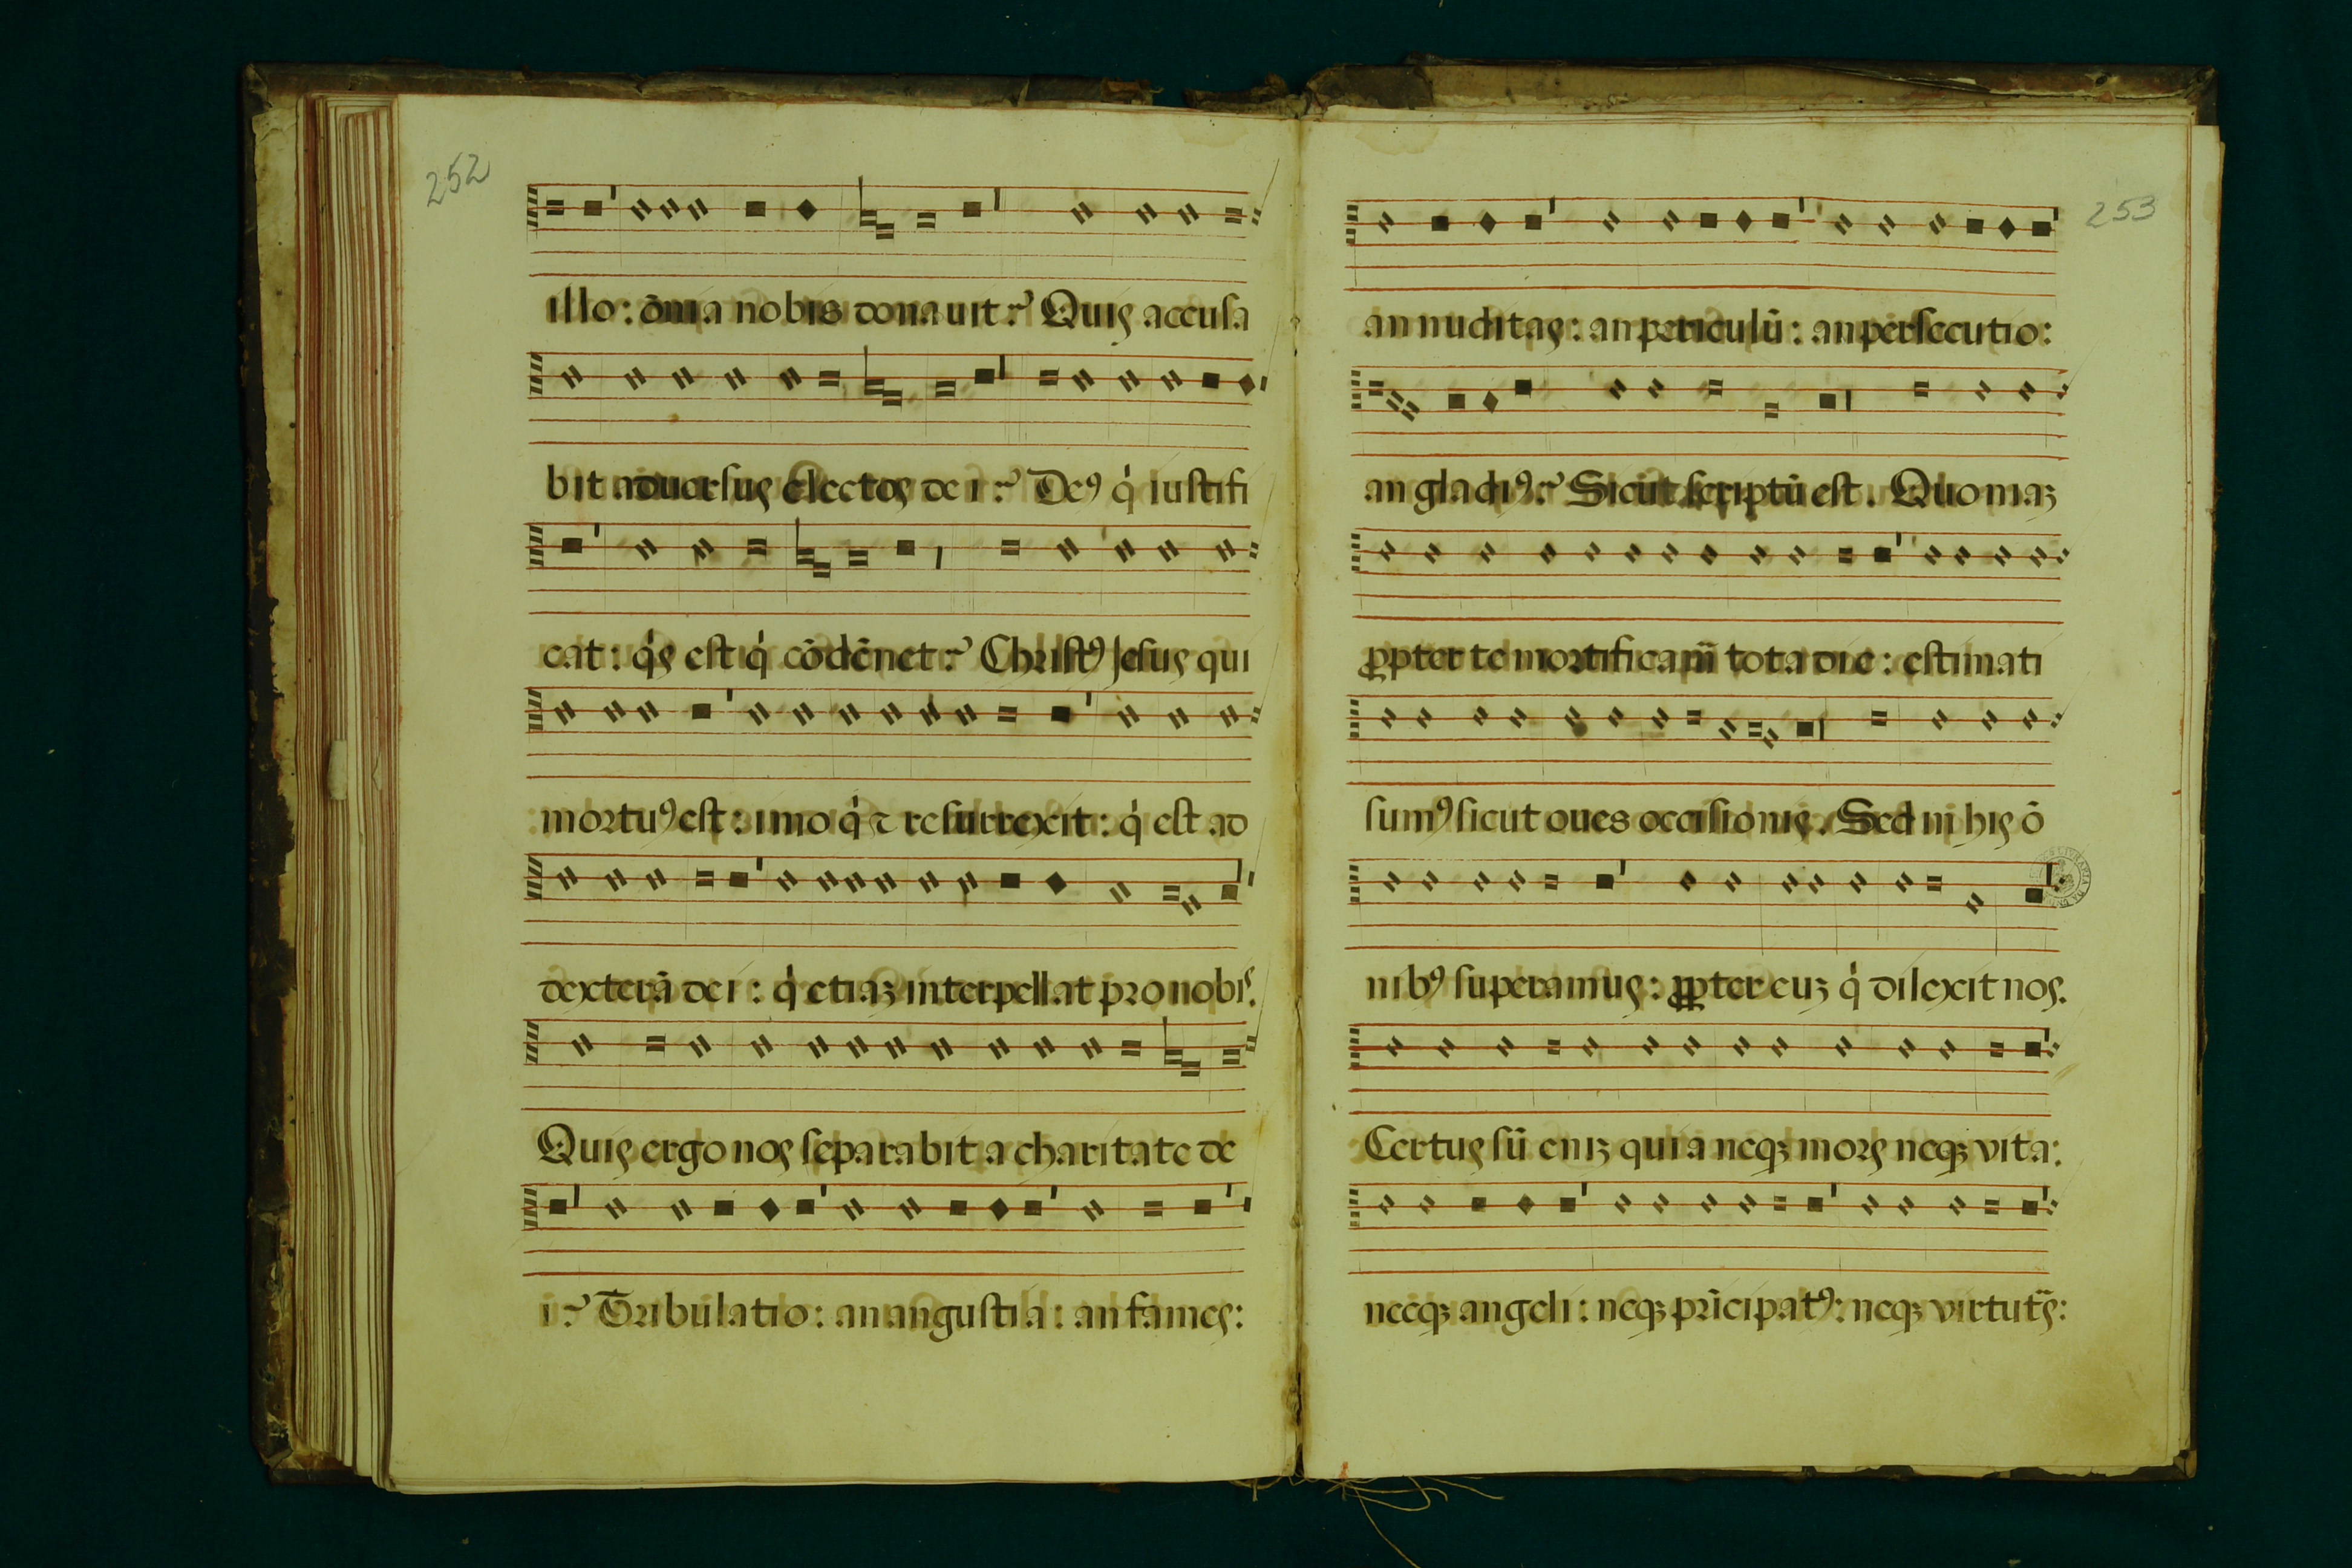 252
illo: ōnia nobis donauit? Quis accusa
bit aduersus electos dei? Deꝰ q̍ iustifi
cat: q̍s est q̍ cōdēnet? Christꝰ Jesus qui
mortuꝰ est: imo q̍ ⁊ resurrexit: q̍ est ad
dexterā dei: q̍ etiaꝫ interpellat pro nobiˢ.
Quis ergo nos separabit a charitate de
i? Tribulatio: an angustia: an fames:
253
an nuditas: an periculū: an persecutio:
an gladiꝰ? Sicut scriptū est. Quoniaꝫ
ꝓpter te mortificam̄ tota die: estimati
sumꝰ sicut oues occisionis. Sed in his ō
nibꝰ superamus: ꝓpter euꝫ q̍ dilexit nos.
Certus sū eniꝫ quia neqꝫ mors neqꝫ vita:
neeqꝫ angeli: neqꝫ prīcipatꝰ: neqꝫ virtut̄s: